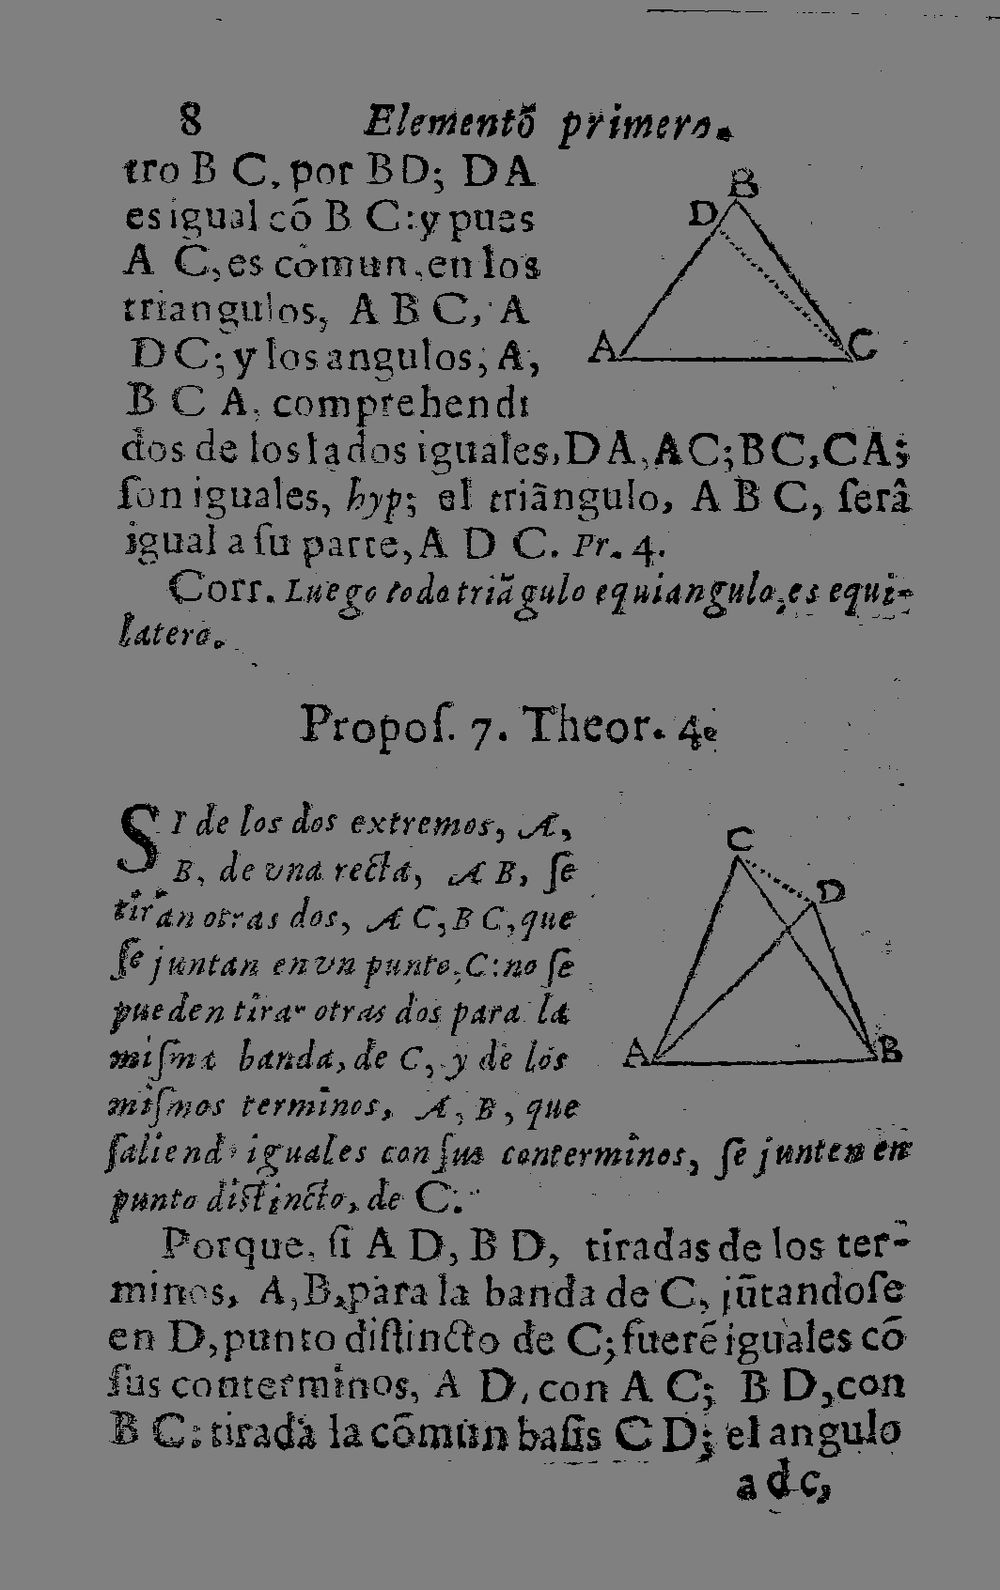 8 Elementō primero.
tro B C, por BD; DA
es igual cō B C: y pues
A C, es cōmun, en los
triangulos, A B C, A
D C; y los angulos, A,
B C A, comprehendi
dos de los lados iguales, DA, AC; BC, CA;
ſon iguales, hyp; el triãngulo, A B C, ſerâ
igual a ſu parte, A D C. Pr. 4.
Corr. Luego todo triãgulo equiangulo, es equi-
latero.
Propoſ. 7. Theor. 4.
SI de los dos extremos, A,
B, de vna recta, A B, ſe
tiran otras dos, A C, B C, que
ſe juntan en vn punto, C: no ſe
pueden tirar otras dos para la
miſma banda, de C, y de los
miſmos terminos, A, B, que
ſaliendo iguales con ſus conterminos, ſe junten en
punto diſtincto, de C.
Porque, ſi A D, B D, tiradas de los ter-
minos, A, B, para la banda de C, jūtandoſe
en D, punto diſtincto de C; fuerē iguales cō
ſus conterminos, A D, con A C; B D, con
B C: tirada la cōmun baſis C D; el angulo
adc,
B
D
A
C
C
D
A
B